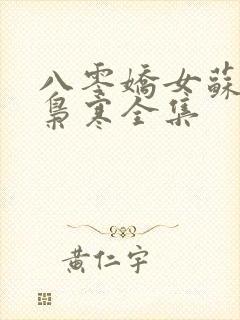 八零嬌女蘇
梟寒全集
黃仁宇